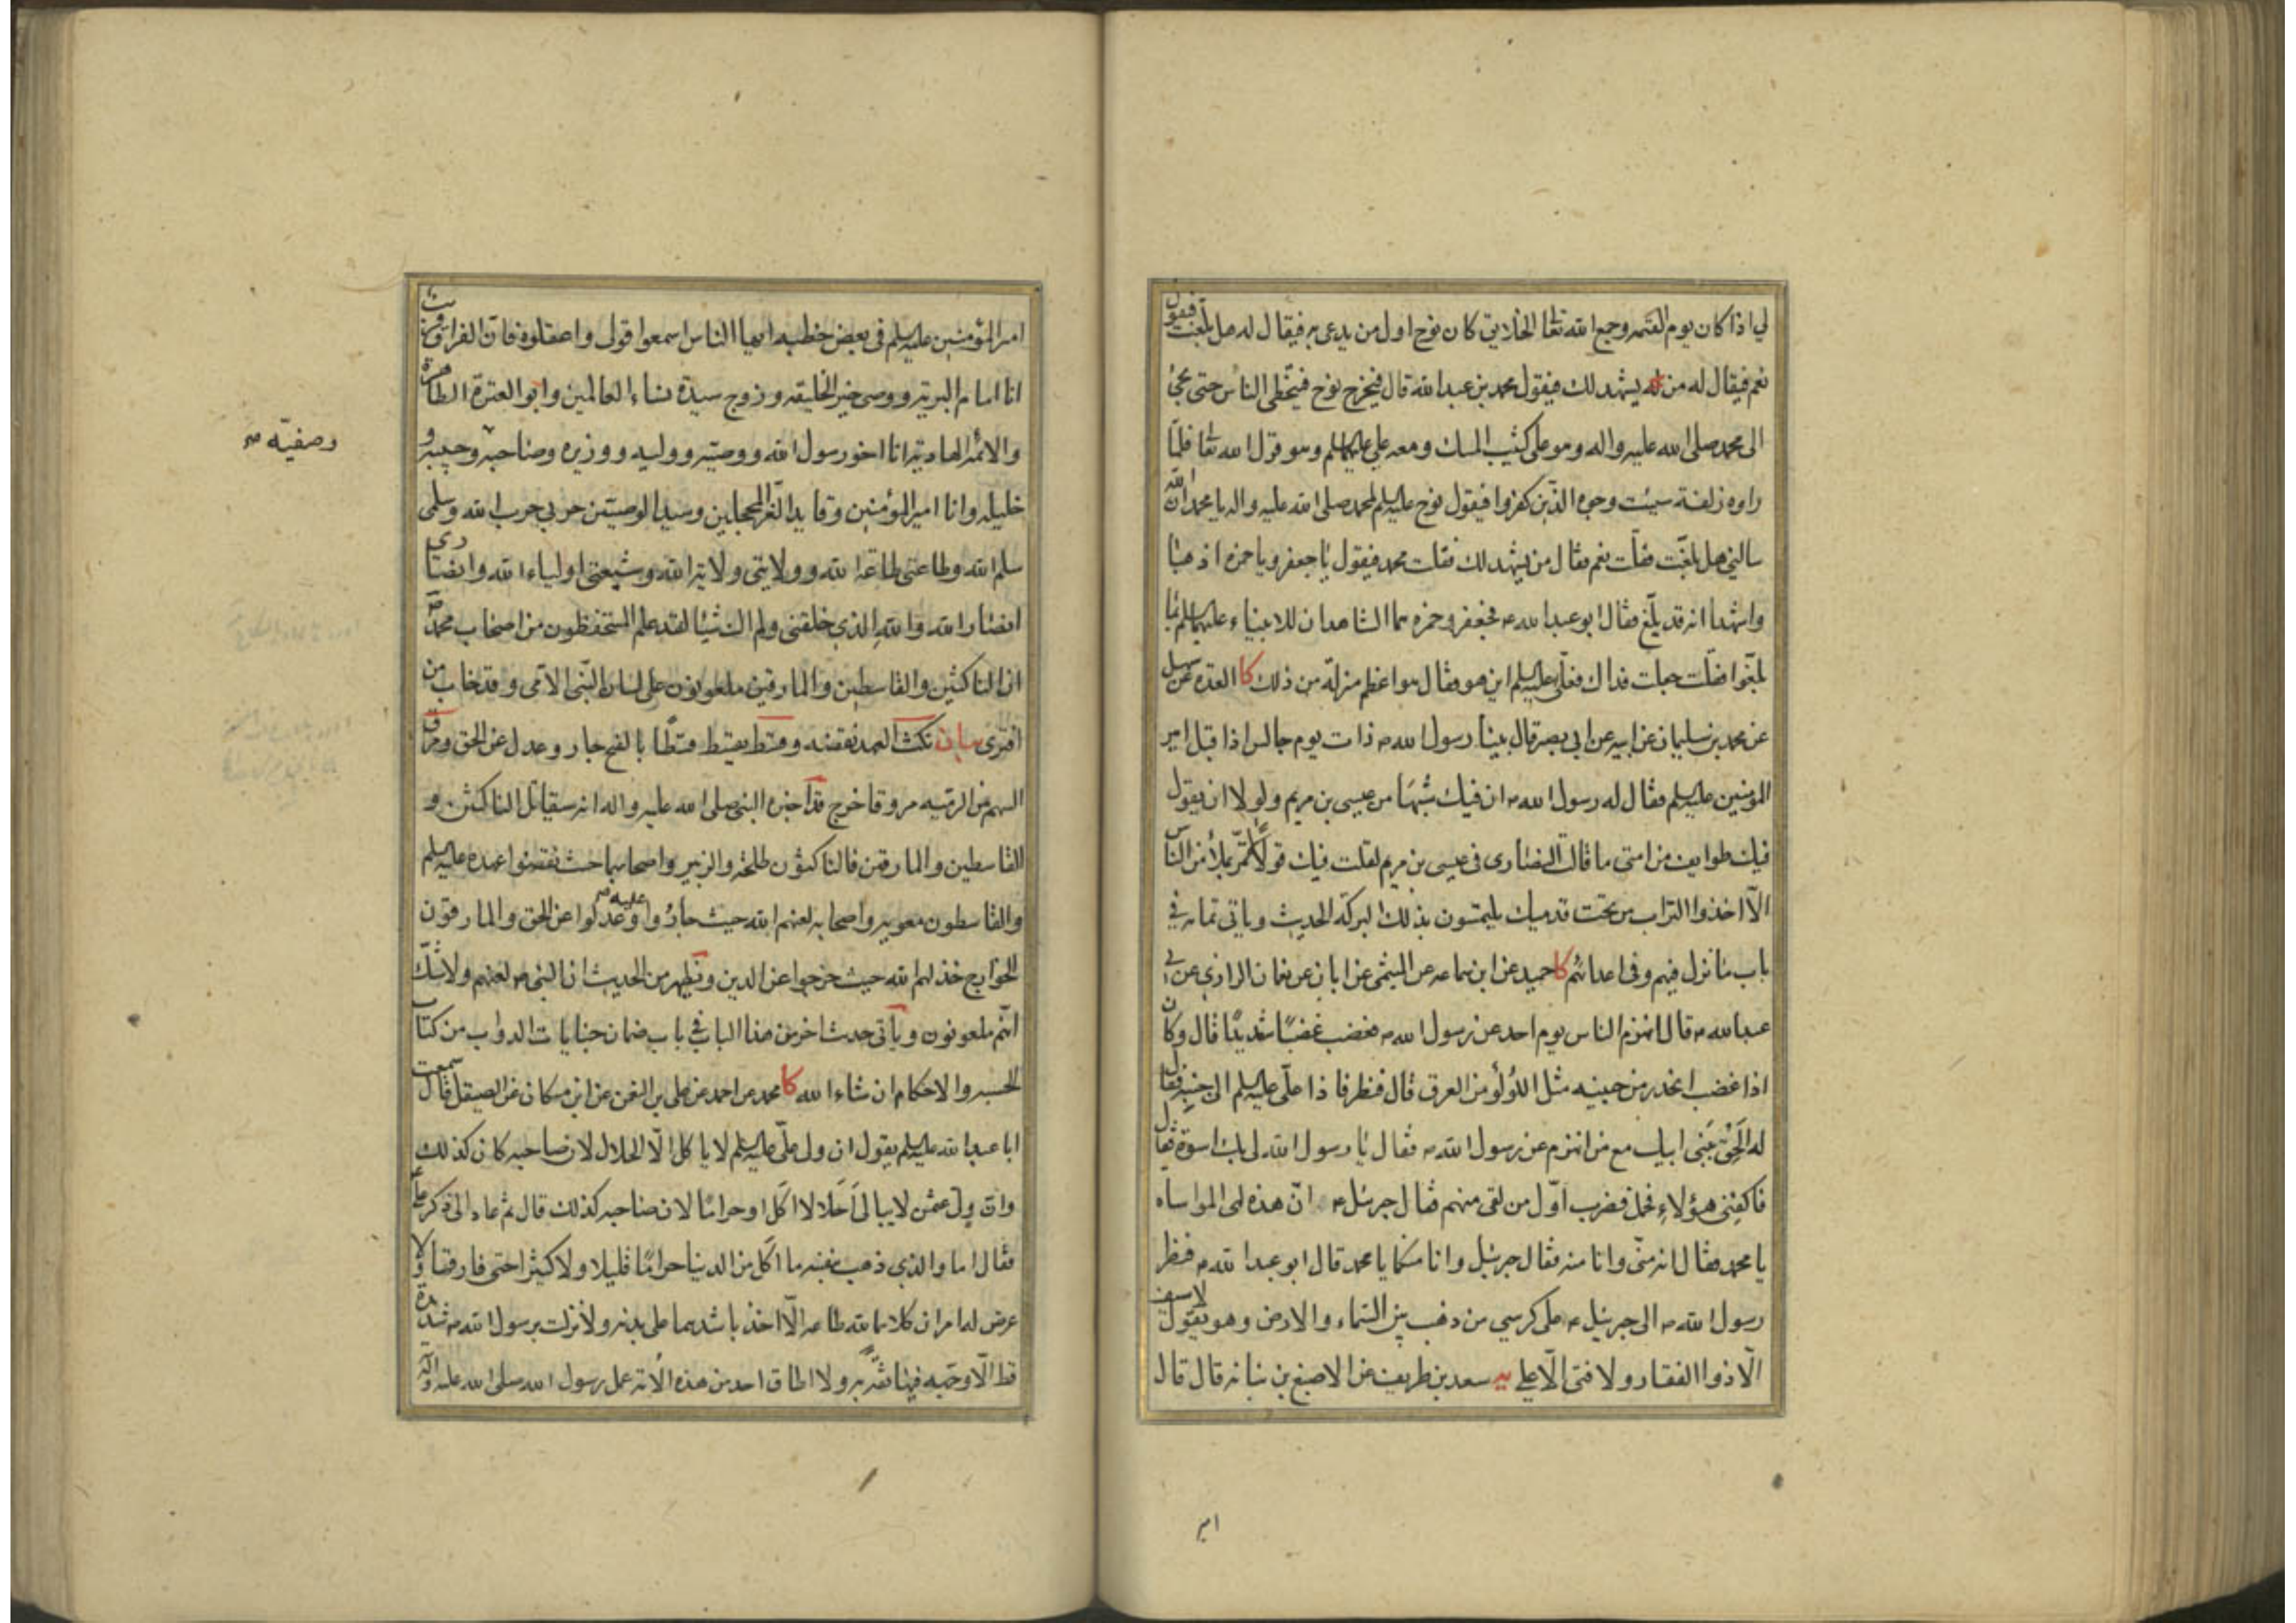 لي اذا كان يوم القيمه وجمع الله تعا الخلايق كان نوح اول من يدعى به فيقال له هل بلغت فيقول
نعم فيقال له من يشهد لك فيقول محمد بن عبدالله قال فيخرج نوح فيتخطى الناس حتى يجئ
الى محمد صلى الله عليه واله وهو على كثيب المسك ومعه علي عليه السلم وهو قول الله تعا فلما
راوه زلفة سيئت وجوه الذين كفروا فيقول نوح عليه السلم لمحمد صلى الله عليه واله يا محمد ان الله
سالني هل بلغت فقلت نعم فقال من يشهد لك فقلت محمد فيقول يا جعفر ويا حمزه اذهبا
واشهدا انه قد بلغ فقال ابو عبدالله ع فجعفر وحمزه هما الشاهدان للانبياء عليهم السلم بما
بلغوا فقلت جعلت فداك فعلي عليه السلم اين هو فقال هو اعظم منزلة من ذلك كا العدة عن سهل
عن محمد بن سليمان عن ابيه عن ابي بصير قال بينا رسول الله ص ذات يوم جالس اذا قبل امير
المؤمنين عليه السلم فقال له رسول الله ص ان فيك شبها من عيسى بن مريم ولولا ان يقول
فيك طوايف من امتى ما قالت النصارى في عيسى بن مريم لقلت فيك قولا لا تمر بملأ من الناس
الا اخذوا التراب من تحت قدميك يلتمسون بذلك البركة الحديث وياتي تمامه في
باب ما نزل فيهم وفي اعدائهم كا حميد عن ابن سماعه عن الميثمي عن ابان عن نعمان الرازي عن ابي
عبدالله ع قال انهزم الناس يوم احد عن رسول الله ص فغضب غضبا شديدا قال وكان
اذا غضب انحدر من جبينه مثل اللؤلؤ من العرق قال فنظر فاذا علي عليه السلم الى جنبه فقال
له الحق ببني ابيك مع من انهزم عن رسول الله ص فقال يا رسول الله لي بك اسوة فقال
فاكفني هؤلاء فحمل فضرب اول من لقى منهم فقال جبرئيل ع ان هذه لهى المواساه
يا محمد فقال انه منى وانا منه فقال جبرئيل وانا منكما يا محمد قال ابو عبدالله ع فنظر
رسول الله ص الى جبرئيل ع على كرسي من ذهب بين السماء والارض وهو يقول لا سيف
الا ذوا الفقار ولا فتى الا علي يه سعد بن طريف عن الاصبغ بن نباته قال قال
امير
امير المؤمنين عليه السلم في بعض خطبه ايها الناس اسمعوا قولي واعقلوه فان الفراق قريب
انا امام البرية ووصى خير الخليقه وزوج سيدة نساء العالمين وابو العترة الطاهرة
والائمة الهادية انا اخو رسول الله ووصيه ووليه ووزيره وصاحبه وحبيبه و
وصفيه صح
خليله وانا امير المؤمنين وقايد الغر المحجلين وسيد الوصيين حربي حرب الله وسلمى
سلم الله وطاعتى طاعة الله وولايتى ولاية الله وشيعتى اولياء الله وانصارى
انصار الله والله الذي خلقنى ولم اك شيئا لقد علم المستحفظون من اصحاب محمد ص
ان الناكثين والقاسطين والمارقين ملعونون على لسان النبي الامى وقد خاب من
افترى بيان نكث العهد نقضه وقسط يقسط قسطا بالفتح جار وعدل عن الحق ومرق
السهم من الرميه مروقا خرج قد اخبره النبى صلى الله عليه واله انه سيقاتل الناكثين و
القاسطين والمارقين فالناكثون طلحة والزبير واصحابهما حيث نقضوا عهده عليه السلم
والقاسطون معويه واصحابه لعنهم الله حيث جاروا عليه وعدلوا عن الحق والمارقون
الخوارج خذلهم الله حيث خرجوا عن الدين ويظهر من الحديث ان النبى ص لعنهم ولا شك
انهم ملعونون وياتى حديث اخر من هذا الباب في باب ضمان جنايات الدواب من كتاب
الحسبه والاحكام ان شاء الله كا محمد عن احمد عن علي بن النعمن عن ابن مسكان عن الصيقل قال سمعت
ابا عبدالله عليه السلم يقول ان ولى علي عليه السلم لا ياكل الا الحلال لان صاحبه كان كذلك
وان ولى عثمن لا يبالى احلالا اكل او حراما لان صاحبه كذلك قال ثم عاد الى ذكر علي ع
فقال اما والذي ذهب بنفسه ما اكل من الدنيا حراما قليلا ولا كثيرا حتى فارقها ولا
عرض له امران كلاهما لله طاعه الا اخذ باشدهما على بدنه ولا نزلت برسول الله ص شديدة
قط الا وجهه فيها ثقة به ولا اطاق احد من هذه الامة عمل رسول الله صلى الله عليه وآله